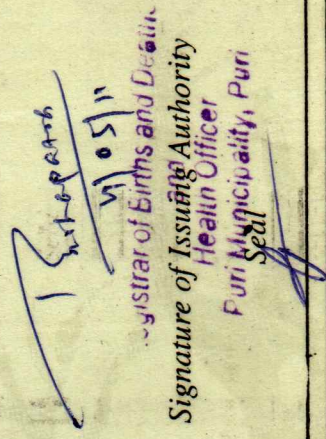 11/05/11
gistrar of Births and Deaths
Signature of Issuing Authority
and
Health Officer
Puri Municipality, Puri
Seal